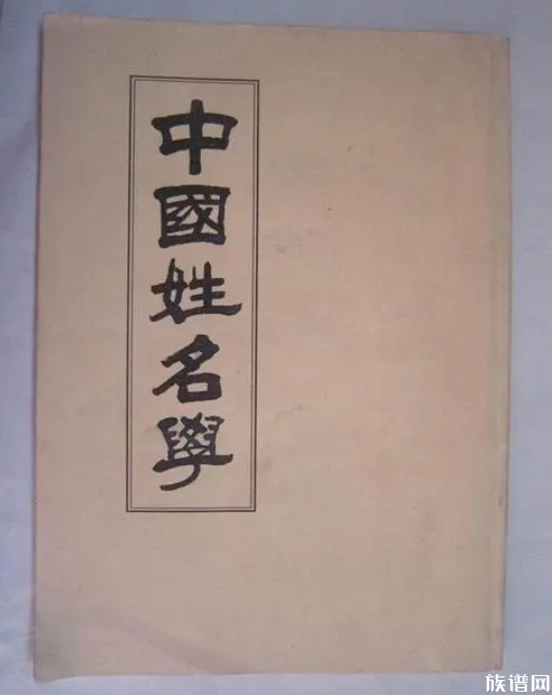 中國姓名學
族谱网